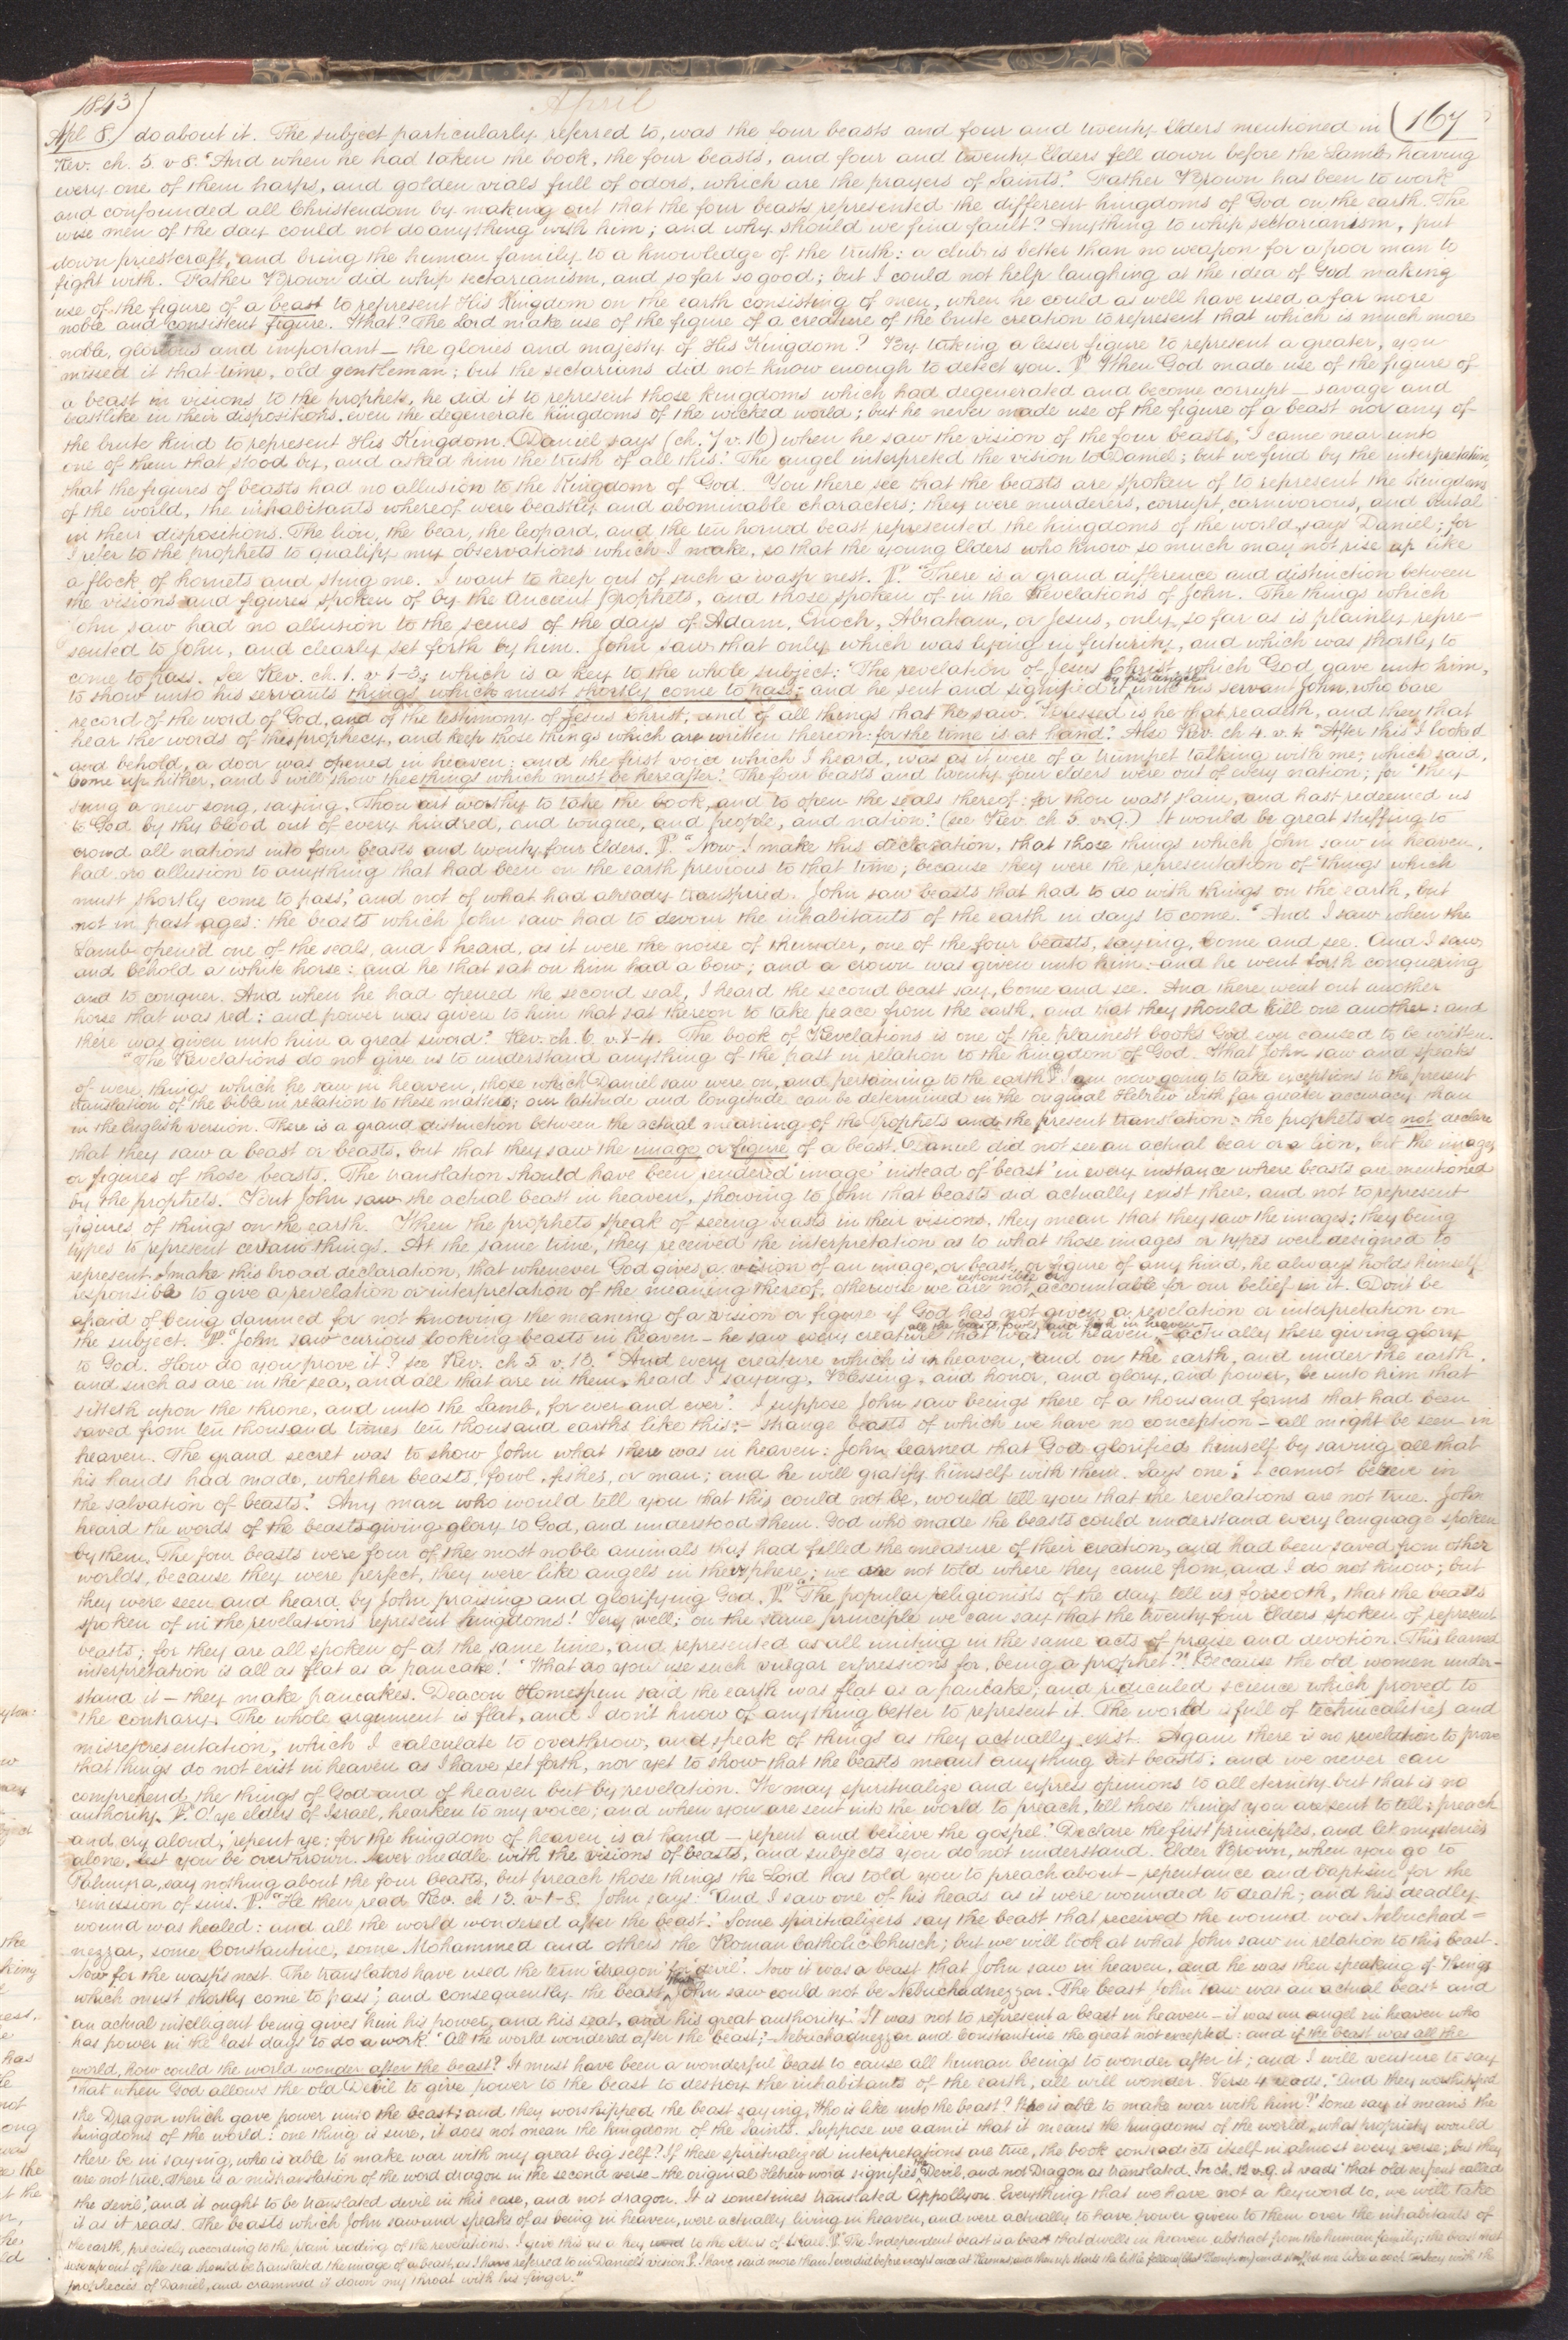 1843
April
167
Apl 8. do about it. The subject particularly referred to, was the four beasts and four and twenty Elders mentioned in
Rev. ch. 5. v 8. "And when he had taken the book, the four beasts, and four and twenty Elders fell down before the Lamb, having
every one of them harps, and golden vials full of odors, which are the prayers of Saints." Father Brown has been to work
and confounded all Christendom by making out that the four beasts represented the different kingdoms of God on the earth. The
wise men of the day could not do anything with him; and why should we find fault? Anything to whip sectarianism, put
down priestcraft, and bring the human family to a knowledge of the truth: a club is better than no weapon for a poor man to
fight with. Father Brown did whip sectarianism, and so far so good; but I could not help laughing at the idea of God making
use of the figure of a beast to represent His Kingdom on the earth consisting of men, when he could as well have used a far more
noble and consistent figure. What? The Lord make use of the figure of a creature of the brute creation to represent that which is much more
noble, glorious and important — the glories and majesty of His Kingdom? By taking a lesser figure to represent a greater, you
missed it that time, old gentleman; but the sectarians did not know enough to detect you. ¶ When God made use of the figure of
a beast in visions to the prophets, he did it to represent those kingdoms which had degenerated and become corrupt — savage and
beastlike in their dispositions, even the degenerate kingdoms of the wicked world; but he never made use of the figure of a beast nor any of
the brute kind to represent His Kingdom. Daniel says (ch. 7 v. 16) when he saw the vision of the four beasts, "I came near unto
one of them that stood by, and asked him the truth of all this." The angel interpreted the vision to Daniel; but we find by the interpretation,
that the figures of beasts had no allusion to the Kingdom of God. You there see that the beasts are spoken of to represent the Kingdoms
of the world, the inhabitants whereof were beastly and abominable characters; they were murderers, corrupt, carnivorous, and brutal
in their dispositions. The lion, the bear, the leopard, and the ten horned beast represented the kingdoms of the world, says Daniel; for
I refer to the prophets to qualify my observations which I make, so that the young Elders who know so much may not rise up like
a flock of hornets and sting me. I want to keep out of such a wasp nest. ¶ "There is a grand difference and distinction between
the visions and figures spoken of by the Ancient prophets, and those spoken of in the Revelations of John. The things which
John saw had no allusion to the scenes of the days of Adam, Enoch, Abraham, or Jesus, only so far as is plainly repre-
sented to John, and clearly set forth by him. John saw that only which was lying in futurity, and which was shortly to
come to pass. See Rev. ch. 1. v. 1-3; which is a key to the whole subject: "The revelation of Jesus Christ, which God gave unto him,
to show unto his servants things which must shortly come to pass; and he sent and signified it by his angel unto his servant John, who bare
record of the word of God, and of the testimony of Jesus Christ, and of all things that he saw. Blessed is he that readeth, and they that
hear the words of this prophecy, and keep those things which are written therein: for the time is at hand." Also Rev. ch 4. v. 1. "After this I looked
and behold, a door was opened in heaven; and the first voice which I heard, was as it were of a trumpet talking with me; which said,
Come up hither, and I will show thee things which must be hereafter." The four beasts and twenty four elders were out of every nation; for "they
sung a new song, saying, Thou art worthy to take the book, and to open the seals thereof: for thou wast slain, and hast redeemed us
to God by thy blood out of every kindred, and tongue, and people, and nation." (see Rev. ch 5 v. 9.) It would be great stuffing to
crowd all nations into four beasts and twenty four Elders. ¶ "Now I make this declaration, that those things which John saw in heaven,
had no allusion to anything that had been on the earth previous to that time; because they were the representation of "things which
must shortly come to pass," and not of what had already transpired. John saw beasts that had to do with things on the earth, but
not in past ages: the beasts which John saw had to devour the inhabitants of the earth in days to come. "And I saw when the
Lamb opened one of the seals, and I heard, as it were the noise of thunder, one of the four beasts, saying, Come and see. And I saw,
and behold a white horse: and he that sat on him had a bow; and a crown was given unto him: and he went forth conquering
and to conquer. And when he had opened the second seal, I heard the second beast say, Come and see. And there went out another
horse that was red: and power was given to him that sat thereon to take peace from the earth, and that they should kill one another: and
there was given unto him a great sword." Rev. ch. 6. v. 1-4. The book of Revelations is one of the plainest books God ever caused to be written.
"The Revelations do not give us to understand anything of the past in relation to the kingdom of God. What John saw and speaks
of were things which he saw in heaven, those which Daniel saw were on, and pertaining to the earth. ¶ I am now going to take exceptions to the present
translation of the bible in relation to these matters; our latitude and longitude can be determined in the original Hebrew with far greater accuracy than
in the English version. There is a grand distinction between the actual meaning of the Prophets and the present translation: the prophets do not declare
that they saw a beast or beasts, but that they saw the image or figure of a beast. Daniel did not see an actual bear or a lion, but the images
or figures of those beasts. The translation should have been rendered 'image' instead of beast 'in every instance where beasts are mentioned
by the prophets. But John saw the actual beast in heaven, showing to John that beasts did actually exist there, and not to represent
figures of things on the earth. When the prophets speak of seeing beasts in their visions, they mean that they saw the images; they being
types to represent certain things. At the same time, they received the interpretation as to what those images or types were designed to
represent. I make this broad declaration, that whenever God gives a vision of an image, or beast, or figure of any kind, he always holds himself
responsible to give a revelation or interpretation of the meaning thereof, otherwise we are not responsible or accountable for our belief in it. Don't be
afraid of being damned for not knowing the meaning of a vision or figure if God has not given a revelation or interpretation on
the subject. ¶ "John saw curious looking beasts in heaven — he saw every creature that was in heaven, all the beasts, fowls, and fish in heaven — actually there giving glory
to God. How do you prove it? see Rev. ch 5. v. 13. "And every creature which is in heaven, and on the earth, and under the earth,
and such as are in the sea, and all that are in them, heard I saying, Blessing, and honor, and glory, and power, be unto him that
sitteth upon the throne, and unto the Lamb, for ever and ever." I suppose John saw beings there of a thousand forms that had been
saved from ten thousand times ten thousand earths like this; — strange beasts of which we have no conception — all might be seen in
heaven. The grand secret was to show John what there was in heaven: John learned that God glorified himself by saving all that
his hands had made, whether beasts, fowl, fishes, or man; and he will gratify himself with them. Says one, I cannot believe in
the salvation of beasts." Any man who would tell you that this could not be, would tell you that the revelations are not true. John
heard the words of the beasts giving glory to God, and understood them. God who made the beasts could understand every language spoken
by them. The four beasts were four of the most noble animals that had filled the measure of their creation, and had been saved from other
worlds, because they were perfect, they were like angels in their sphere; we are not told where they came from, and I do not know; but
they were seen and heard by John praising and glorifying God. ¶ "The popular religionists of the day tell us forsooth, that the beasts
spoken of in the revelations represent kingdoms! Very well; on the same principle we can say that the twenty four Elders spoken of represent
beasts; for they are all spoken of at the same time, and represented as all uniting in the same acts of praise and devotion. This learned
interpretation is all as flat as a pancake! "What do you use such vulgar expressions for, being a prophet?" Because the old women under-
stand it — they make pancakes. Deacon Homespun said the earth was flat as a pancake, and ridiculed science which proved to
the contrary. The whole argument is flat, and I don't know of anything better to represent it. The world is full of technicalities and
misrepresentation, which I calculate to overthrow, and speak of things as they actually exist. Again there is no revelation to prove
that things do not exist in heaven as I have set forth, nor yet to show that the beasts meant anything but beasts; and we never can
comprehend the things of God and of heaven but by revelation. We may spiritualize and express opinions to all eternity but that is no
authority. ¶ O! ye elders of Israel, hearken to my voice; and when you are sent into the world to preach, tell those things you are sent to tell; preach
and cry aloud, 'repent ye: for the kingdom of heaven is at hand — repent and believe the gospel.' Declare the first principles, and let mysteries
alone, lest you be overthrown. Never meddle with the visions of beasts, and subjects you do not understand. Elder Brown, when you go to
Palmyra, say nothing about the four beasts, but preach those things the Lord has told you to preach about — repentance and baptism for the
remission of sins. ¶ "He then read Rev. ch 13. v-1-8. John says: "And I saw one of his heads as it were wounded to death; and his deadly
wound was healed: and all the world wondered after the beast." Some spiritualizers say the beast that received the wound was Nebuchad=
nezzar, some Constantine, some Mohammed and others the Roman Catholic Church; but we will look at what John saw in relation to this beast.
Now for the wasp's nest. The translators have used the term 'dragon' for 'devil'. Now it was a beast that John saw in heaven, and he was then speaking of "Things
which must shortly come to pass"; and consequently the beast that John saw could not be Nebuchadnezzar. The beast John saw was an actual beast and
an actual intelligent being gives him his power, and his seat, and his great authority." It was not to represent a beast in heaven — it was an angel in heaven who
has power in the last days to do a work. "All the world wondered after the beast;" Nebuchadnezzar and Constantine the great not excepted: and if the beast was all the
world, how could the world wonder after the beast? It must have been a wonderful beast to cause all human beings to wonder after it; and I will venture to say
that when God allows the old Devil to give power to the beast to destroy the inhabitants of the earth, all will wonder. Verse 4 reads, "And they worshipped
the Dragon which gave power unto the beast; and they worshipped the beast saying, Who is like unto the beast? Who is able to make war with him?" Some say it means the
kingdoms of the world: one thing is sure, it does not mean the kingdom of the Saints. Suppose we admit that it means the kingdoms of the world, what propriety would
there be in saying, who is able to make war with my great big self? If these spiritualized interpretations are true, the book contradicts itself in almost every verse; but they
are not true. There is a mistranslation of the word dragon in the second verse — the original Hebrew word signifies the Devil, and not Dragon as translated. In ch. 12 v. 9. it reads "that old serpent called
the devil," and it ought to be translated devil in this case, and not dragon. It is sometimes translated Appollyon. Everything that we have not a keyword to, we will take
it as it reads. The beasts which John saw and speaks of as being in heaven, were actually living in heaven, and were actually to have power given to them over the inhabitants of
the earth, precisely according to the plain reading of the revelations. I give this as a key word to the elders of Israel. ¶ The Independent beast is a beast that dwells in heaven abstract from the human family; the beast that
rose up out of the sea should be translated the image of a beast, as I have referred to in Daniel's vision. ¶ I have said more than I ever did before except once at Ramus, and then up starts the little fellow and stuffed me like a cock turkey with the
prophecies of Daniel, and crammed it down my throat with his finger."